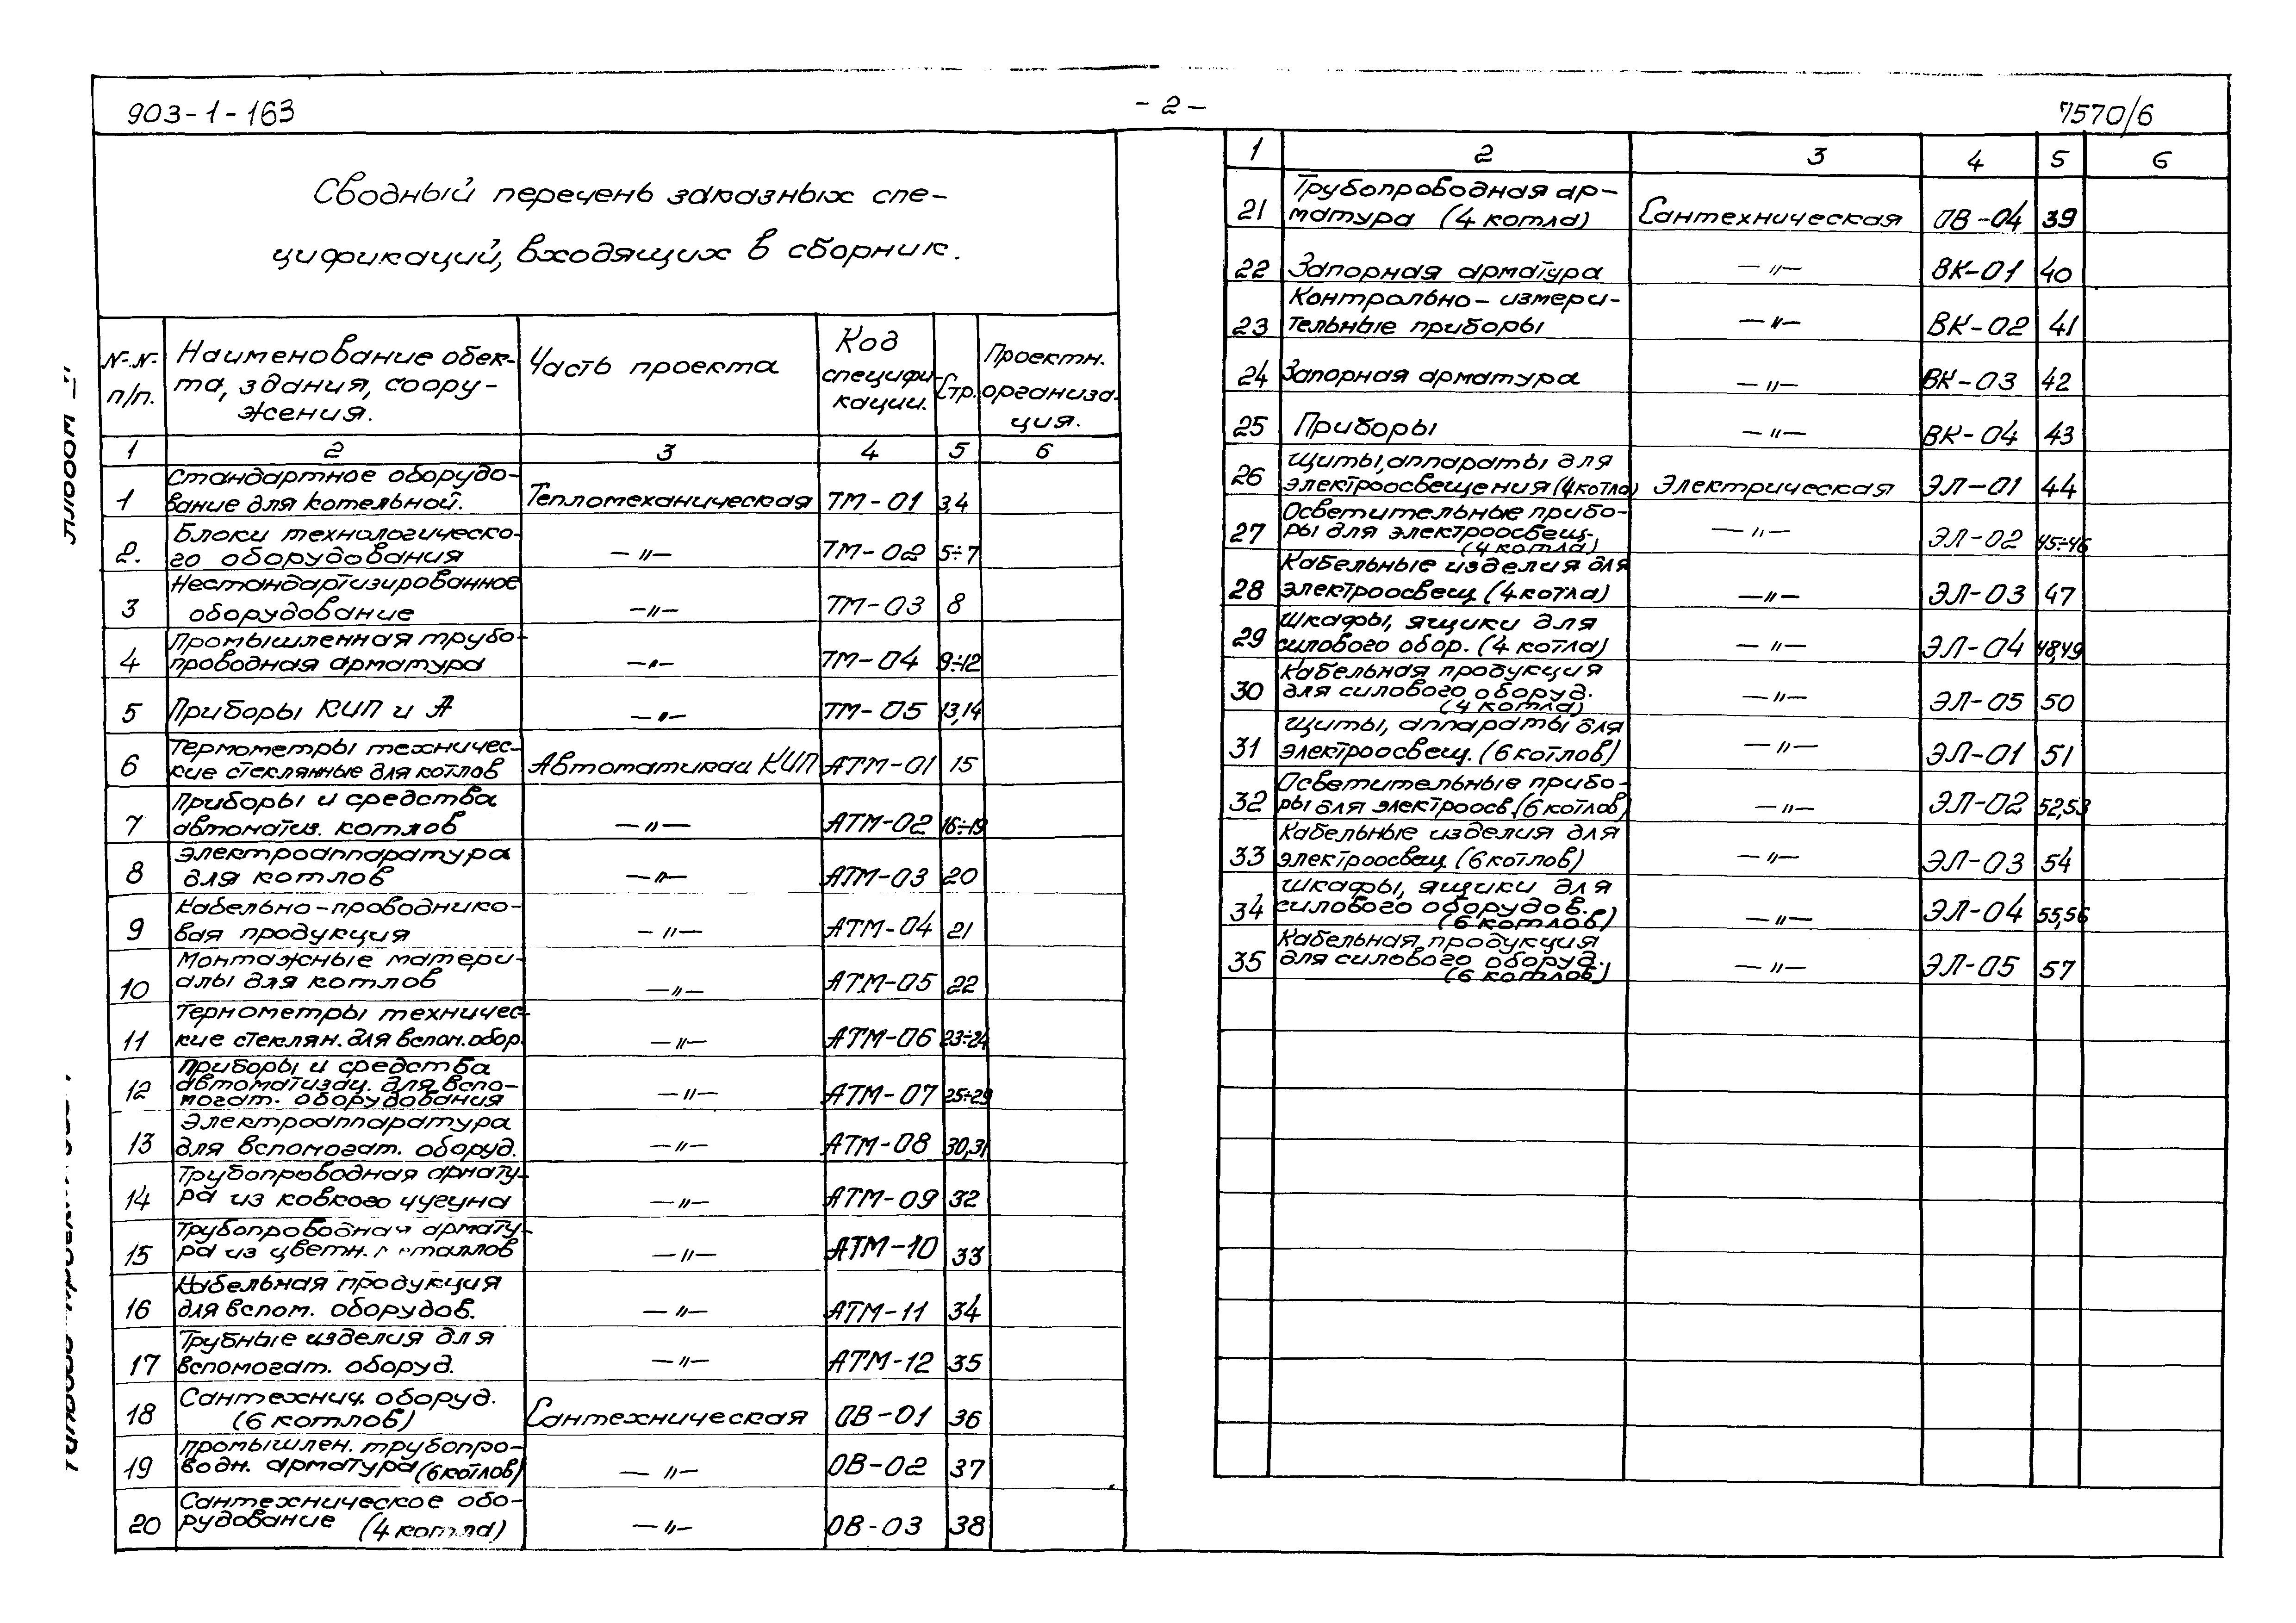 903-1-163
- 2 -
7570/6
Сводный перечень заказных спе-
цификаций, входящих в сборник.
№№ п/п.
Наименование обек-
та, здания, соору-
жения.
Часть проекта
Код
специфи-
кации.
Стр.
Проектн.
организа-
ция.
1 2 3 4 5 6
Стандартное оборудо-
1 вание для котельной. Тепломеханическая ТМ-01 3,4
Блоки технологическо-
2. го оборудования —"— ТМ-02 5÷7
Нестандартизированное
3 оборудование —"— ТМ-03 8
Промышленная трубо-
4 проводная арматура —"— ТМ-04 9÷12
5 Приборы КИП и А —"— ТМ-05 13,14
Термометры техничес-
6 кие стеклянные для котлов Автоматикаи КИП АТМ-01 15
Приборы и средства
7 автоматиз. котлов —"— АТМ-02 16÷19
Электроаппаратура
8 для котлов —"— АТМ-03 20
Кабельно-проводнико-
9 вая продукция —"— АТМ-04 21
Монтажные матери-
10 алы для котлов —"— АТМ-05 22
Термометры техничес-
11 кие стеклян. для вспом. обор. —"— АТМ-06 23÷24
Приборы и средства
автоматизац. для вспо-
12 могат. оборудования —"— АТМ-07 25÷29
Электроаппаратура
13 для вспомогат. оборуд. —"— АТМ-08 30,31
Трубопроводная армату-
14 ра из ковкого чугуна —"— АТМ-09 32
Трубопроводная армату-
15 ра из цветн. металлов —"— АТМ-10 33
Кабельная продукция
16 для вспом. оборудов. —"— АТМ-11 34
Трубные изделия для
17 вспомогат. оборуд. —"— АТМ-12 35
Сантехнич. оборуд.
18 (6 котлов) Сантехническая ОВ-01 36
Промышлен. трубопро-
19 водн. арматура (6 котлов) —"— ОВ-02 37
Сантехническое обо-
20 рудование (4 котла) —"— ОВ-03 38
1 2 3 4 5 6
Трубопроводная ар-
21 матура (4 котла) Сантехническая ОВ-04 39
22 Запорная арматура —"— ВК-01 40
Контрольно-измери-
23 тельные приборы —"— ВК-02 41
24 Запорная арматура —"— ВК-03 42
25 Приборы —"— ВК-04 43
Щиты, аппараты для
26 электроосвещения (4 котла) Электрическая ЭЛ-01 44
Осветительные прибо-
27 ры для электроосвещ. —"— ЭЛ-02 45÷46
(4 котла)
Кабельные изделия для
28 электроосвещ. (4 котла) —"— ЭЛ-03 47
Шкафы, ящики для
29 силового обор. (4 котла) —"— ЭЛ-04 48,49
Кабельная продукция
30 для силового оборуд. —"— ЭЛ-05 50
(4 котла)
Щиты, аппараты для
31 электроосвещ. (6 котлов) —"— ЭЛ-01 51
Осветительные прибо-
32 ры для электроосв. (6 котлов) —"— ЭЛ-02 52,53
Кабельные изделия для
33 электроосвещ. (6 котлов) —"— ЭЛ-03 54
Шкафы, ящики для
34 силового оборудов. —"— ЭЛ-04 55,56
(6 котлов)
Кабельная продукция
35 для силового оборуд. —"— ЭЛ-05 57
(6 котлов)